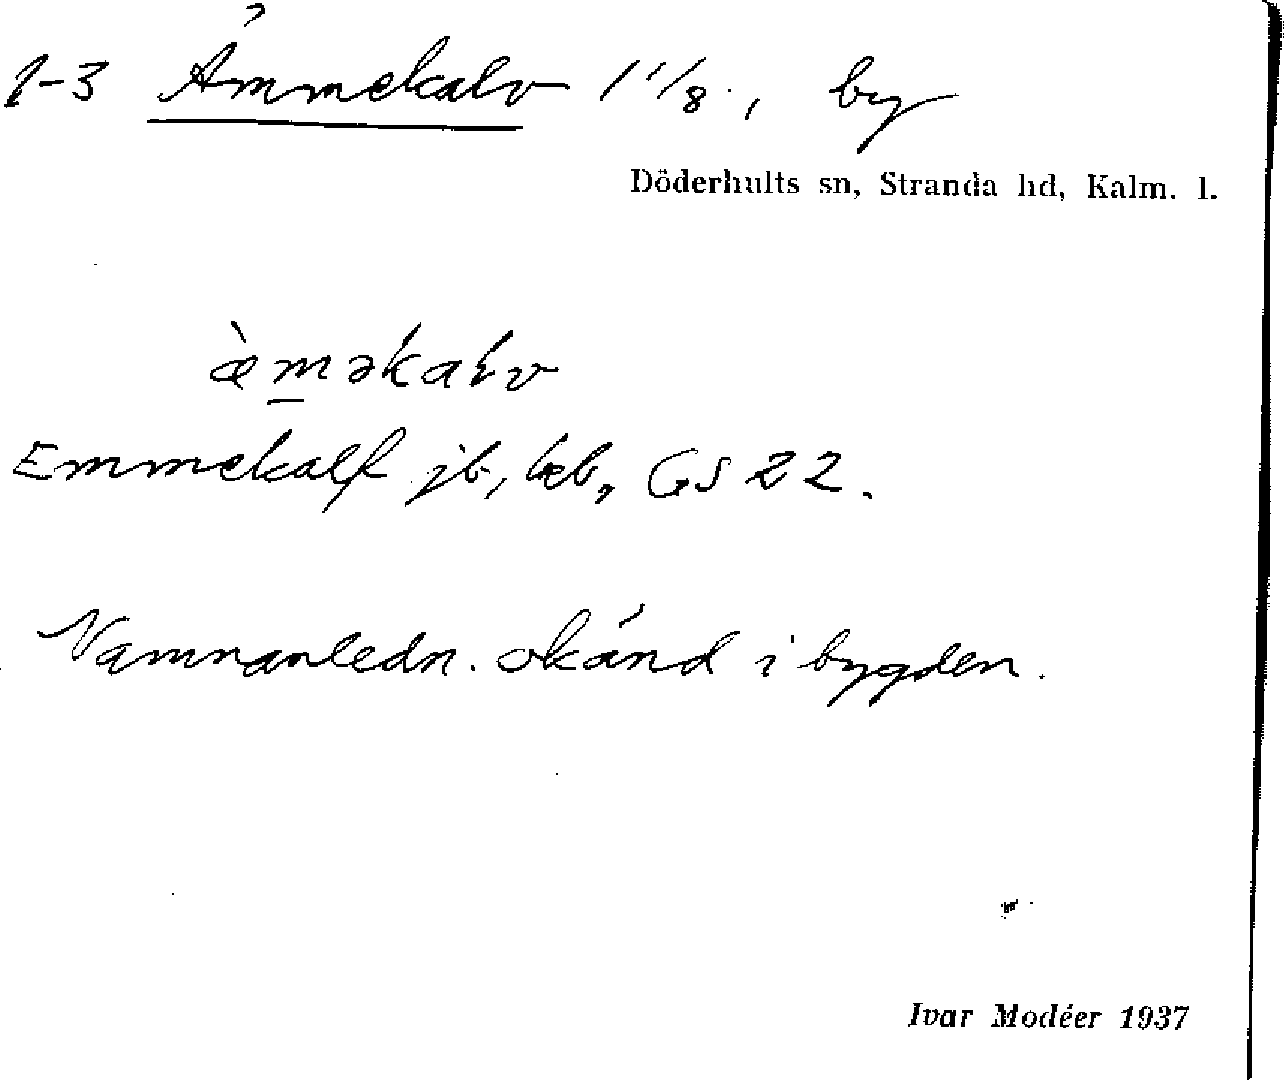 1-3 Ämmekalv 1 1/8, by
Döderhults sn, Stranda hd, Kalm. l.
æ̀m̲əkaĺv
Emmekalf jb, kb, GS 22.
Namnanledn. okänd i bygden.
Ivar Modéer 1937